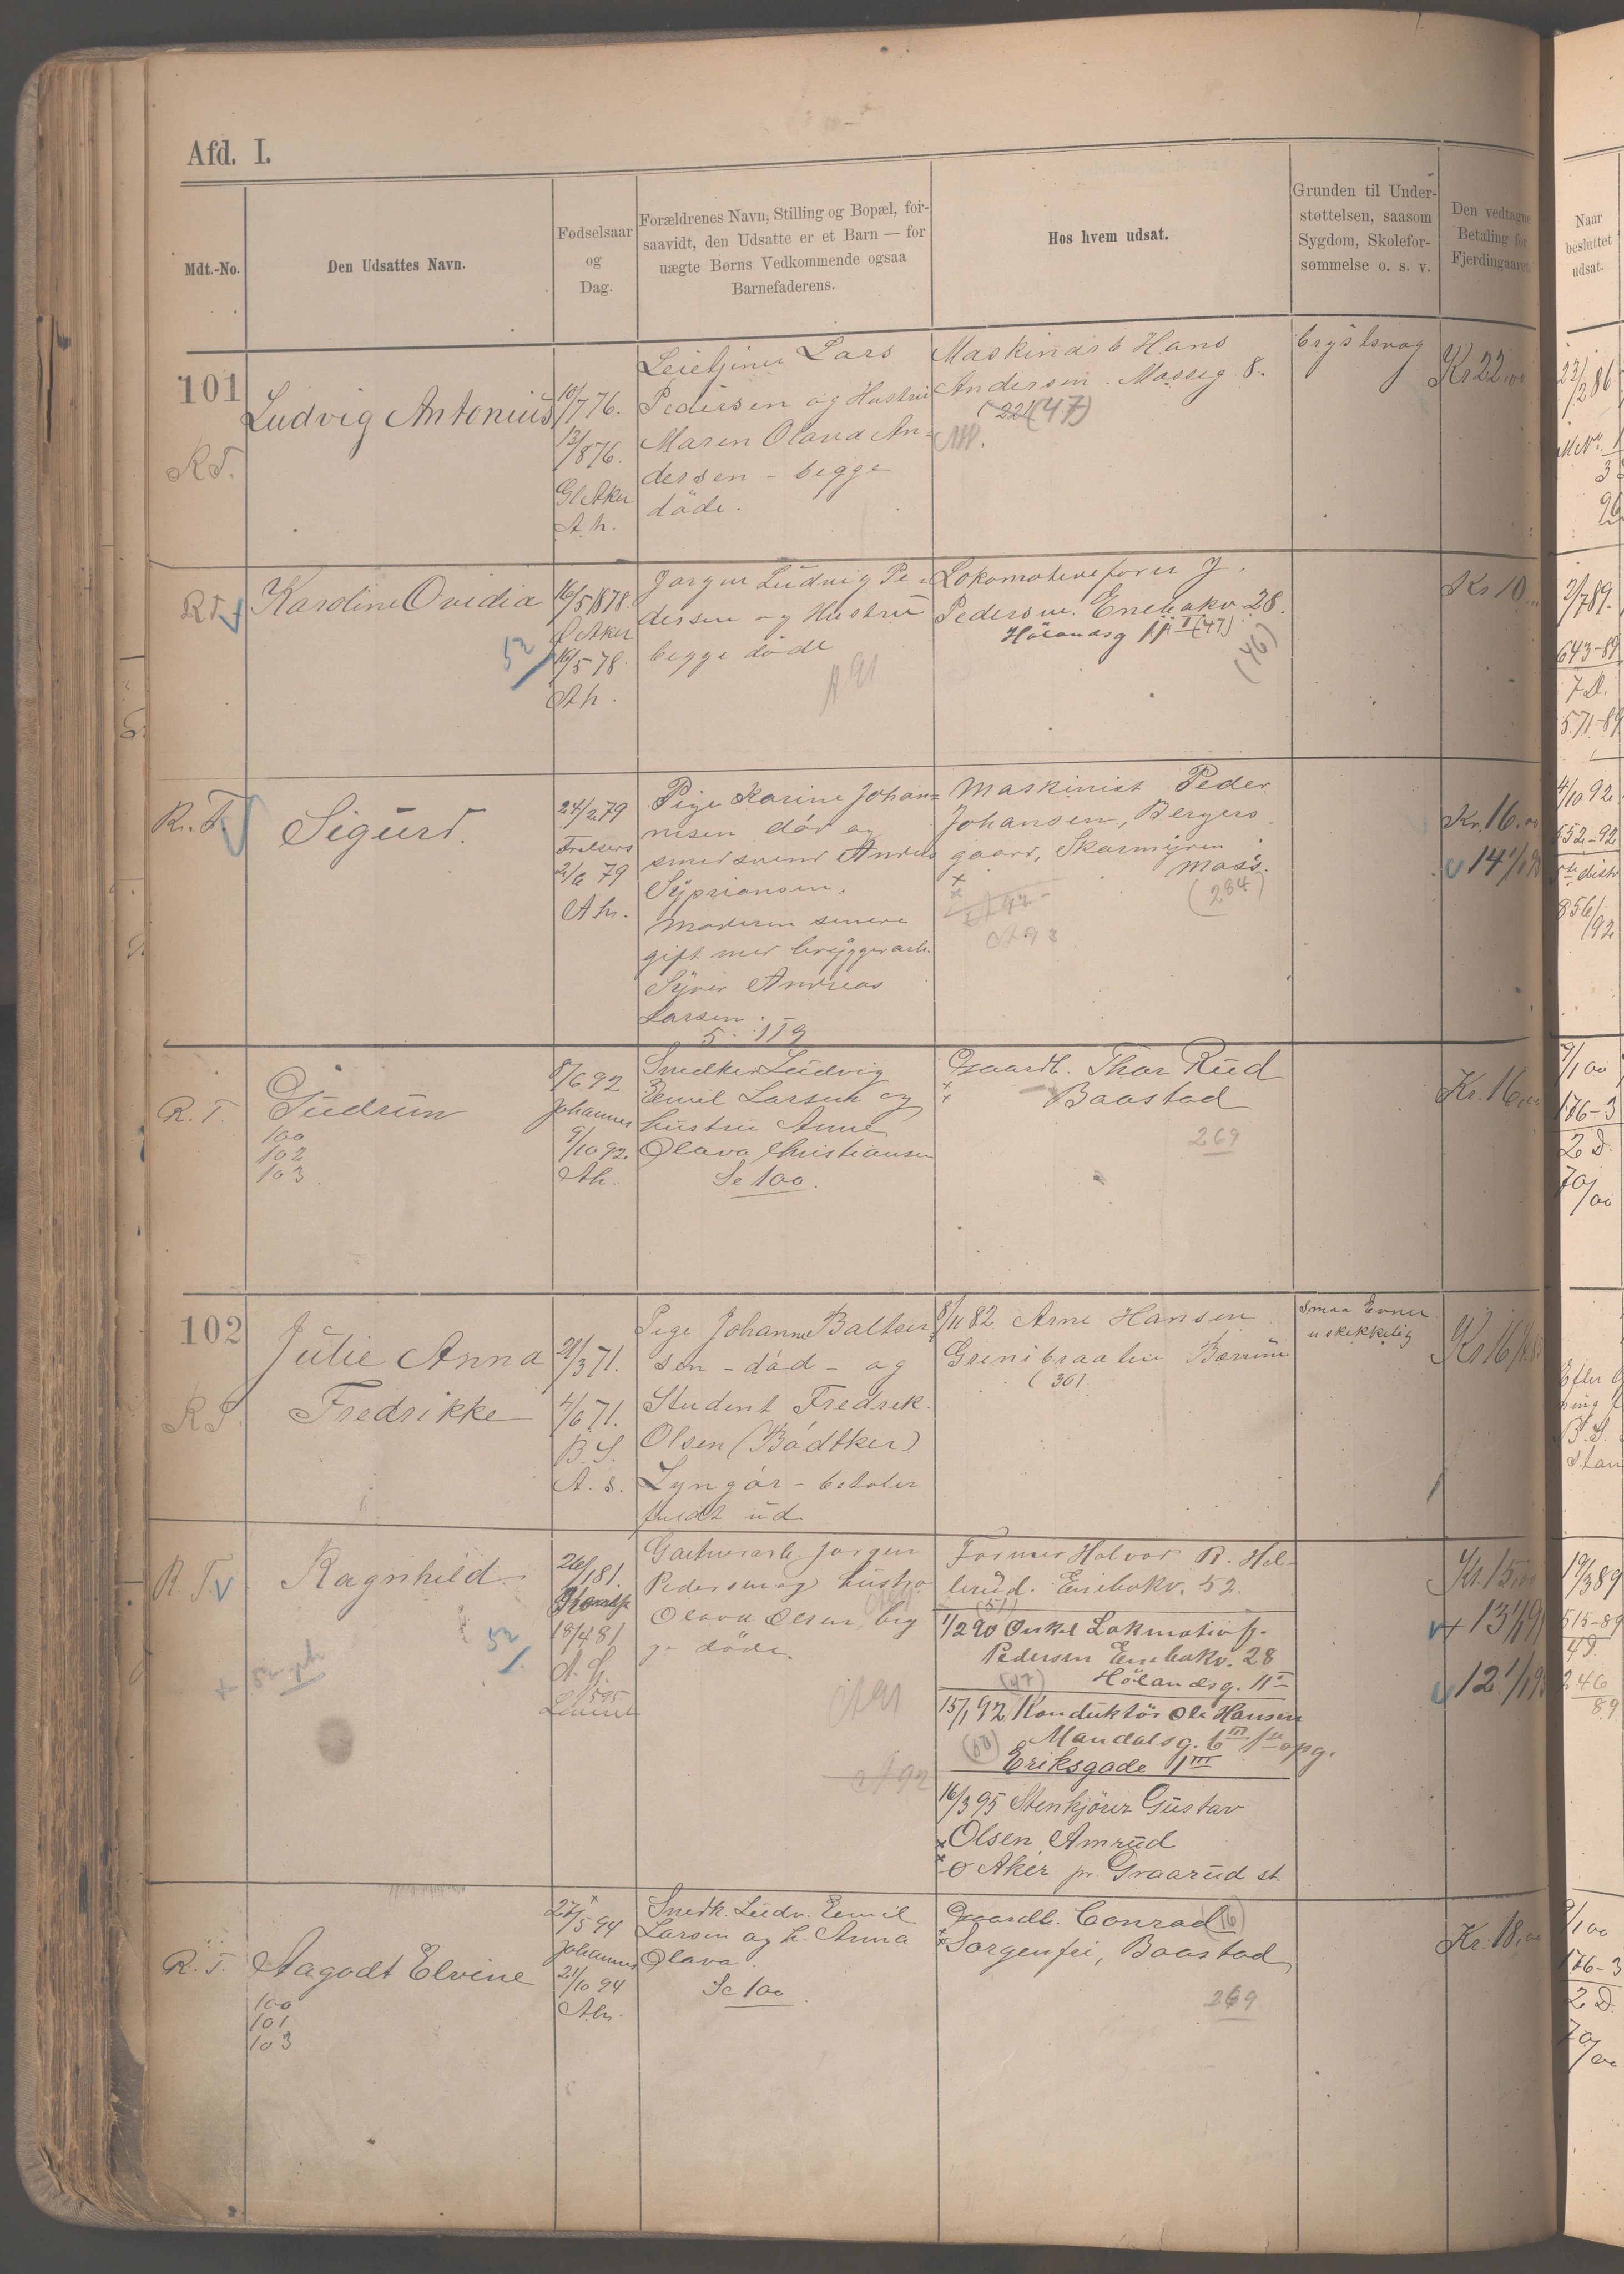 Afd. I.
Mdt.-No.
Den Udsattes Navn.
Fødselsaar
og
Dag.
Forældrenes Navn, Stilling og Bopæl, for-
saavidt, den Udsatte er et Barn — for
uægte Børns Vedkommende ogsaa
Barnefaderens.
Hos hvem udsat.
Grunden til Under-
støttelsen, saasom
Sygdom, Skolefor-
sømmelse o. s. v.
Den vedtagne
Betaling for
Fjerdingaaret.
Naar
besluttet
udsat.
101
Ludvig Antonius
10/7 76.
13/8 76.
Gl Aker
A. h.
Lars
Pedersen og Hustru
Maren Olava An-
dersen - begge
döde.
Maskinarb Hans
Andersen. Mosseg 8.
(47)
brystsvag
Kr 22,00
23/2 86
R.T.
Karoline Ovidia
16/5 1878.
Ø Aker
16/5 78.
Ah.
52
Jørgen Ludvig Pe-
dersen og Hustru
begge döde
A 91
Lokomotivefører J.
Pedersen. Enebakv. 28.
Hölandsg 11 II (47)
(46)
Kr 10
2/7 89.
643-89
7 d.
571-89
R. T.
Sigurd.
24/2 79
Frelsers
2/6 79
Ah.
Pige Karine Johan-
nesen död og
smedsvend Anders
Sypriansen.
Moderen senere
gift med bryggerarb.
Syver Andreas
Larsen.
5. 119
Maskinist Peder
Johansen, Bergers
gaard,
Moss.
(284)
A 92
A 93
Kr. 16.00
14 1/1
4/10 92
552-92
5te distr
856/92
R. T.
Gudrun
100
102
103
8/6 92
Johannes
9/10 92
Ah.
Snedker Ludvig
Emil Larsen og
hustru Anne
Olava Christiansen
Se 100.
Gaardb. Thor Rud
Baastad
269
Kr. 16,00
9/1 00
176-3
2 D.
70/00
102
Julie Anna
Fredrikke
21/3 71.
4/6 71.
B. S.
A. s.
Pige Johanne Baltser
sen - död - og
Student Fredrek
Olsen (Bödtker)
Lyngör - betaler
fuldt ud
8/11 82 Arne Hansen
Grinibraaten Bærum
(301
Smaa Evner
uskikkelig
Kr 16
R. T.
Ragnhild
26/1 81.
18/4 81
A. h.
52
Jørgen
Pedersen og hustru
Olava Olsen, beg
ge döde.
A 91
A 92
Former Halvor R. Hel-
lerud. Enebakv. 52.
(51)
1/2 90 Onkel Lokmotivf.
Pedersen Enebakv. 28
Hölandsg. 11 II
(47)
15/1 92 Konduktör Ole Hansen
Mandalsg. 6 III 1ste opg.
Eriksgade 1 III
16/3 95 Stenkjörer Gustav
Olsen Amrud
Ø Aker pr. Graarud st.
Kr. 15,00
13 1/1 91
12 1/1 9
19/3 89
515-89
4 D.
246
89
R. T.
Aagodt Elvine
100
101
103
27/5 94
Johannes
21/10 94
Ah.
Snedk. Ludv. Emil
Larsen og h. Anna
Olava.
Se 100.
Gaardb. Conrad (16)
Sorgenfri, Baastad
269
Kr. 18,00
9/1 00
176-3
2 D.
70/00